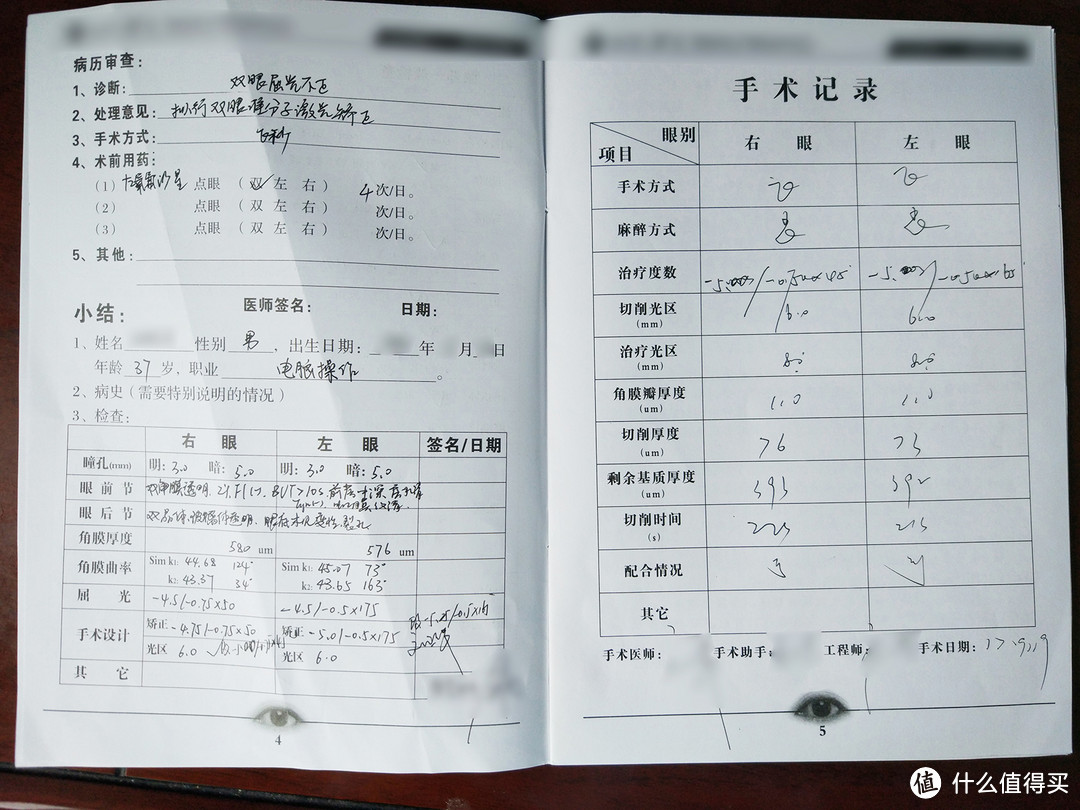 病历审查：
1、诊断： 双眼屈光不正
2、处理意见： 拟行双眼准分子激光矫正
3、手术方式： 飞秒
4、术前用药：
（1）左氧氟沙星 点眼 （双 左 右） 4 次/日。
（2） 点眼 （双 左 右） 次/日。
（3） 点眼 （双 左 右） 次/日。
5、其他：
医师签名： 日期：
小结：
1、姓名 性别 男 ，出生日期： 年 月 日
年龄 37 岁，职业 电脑操作 。
2、病史（需要特别说明的情况）
3、检查：
右 眼 左 眼 签名/日期
瞳孔(mm) 明：3.0 暗：5.0 明：3.0 暗：5.0
眼前节 双角膜透明, BUT>10s
眼后节
角膜厚度 580 um 576 um
角膜曲率 Sim k1: 44.68 124° Sim k1: 45.07 73°
k2: 43.37 34° k2: 43.65 163°
屈 光 -4.5/-0.75×50 -4.5/-0.5×175
手术设计 矫正 -4.75/-0.75×50 矫正 -5.0/-0.5×175
光区 6.0 光区 6.0
其 它
4
手术记录
眼别 右 眼 左 眼
项目
手术方式 飞 飞
麻醉方式 表 表
治疗度数
切削光区 (mm) 6.0 6.0
治疗光区 (mm)
角膜瓣厚度 (um) 110 110
切削厚度 (um) 76 73
剩余基质厚度 (um) 393 392
切削时间 (s)
配合情况
其它
手术医师： 手术助手： 工程师： 手术日期：17.9.19
5
值 什么值得买